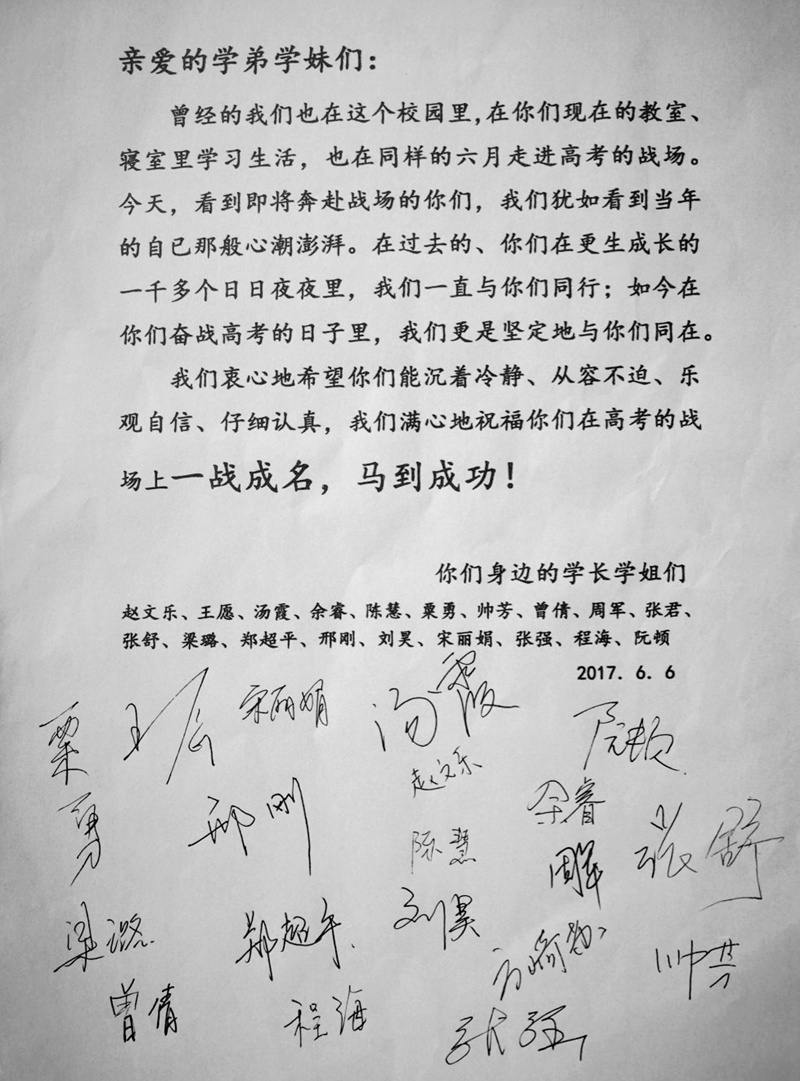 亲爱的学弟学妹们：
曾经的我们也在这个校园里，在你们现在的教室、
寝室里学习生活，也在同样的六月走进高考的战场。
今天，看到即将奔赴战场的你们，我们犹如看到当年
的自己那般心潮澎湃。在过去的、你们在更生成长的
一千多个日日夜夜里，我们一直与你们同行；如今在
你们奋战高考的日子里，我们更是坚定地与你们同在。
我们衷心地希望你们能沉着冷静、从容不迫、乐
观自信、仔细认真，我们满心地祝福你们在高考的战
场上一战成名，马到成功！
你们身边的学长学姐们
赵文乐、王愿、汤霞、余睿、陈慧、粟勇、帅芳、曾倩、周军、张君、
张舒、梁璐、郑超平、邢刚、刘昊、宋丽娟、张强、程海、阮顿
2017．6．6
宋丽娟
汤霞
阮顿
粟勇
赵文乐
余睿
邢刚
陈慧
张舒
刘昊
梁璐
郑超平
帅芳
曾倩
程海
张强